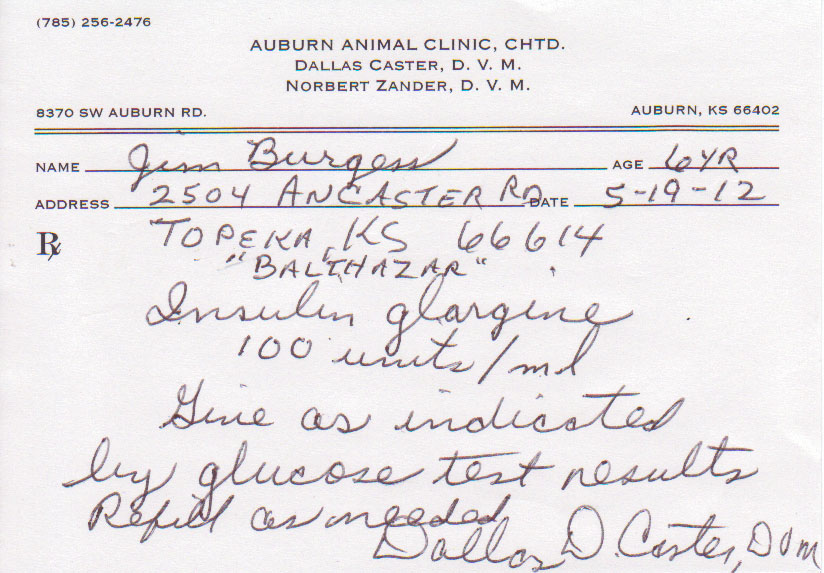 (785) 256-2476
AUBURN ANIMAL CLINIC, CHTD.
DALLAS CASTER, D. V. M.
NORBERT ZANDER, D. V. M.
8370 SW AUBURN RD. AUBURN, KS 66402
NAME Jim Burgess AGE 6YR
ADDRESS 2504 ANCASTER RD DATE 5-19-12
Rx TOPEKA, KS 66614
"BALTHAZAR"
Insulin glargine
100 units/ml
Give as indicated
by glucose test results
Refill as needed
Dallas D. Caster, DVM